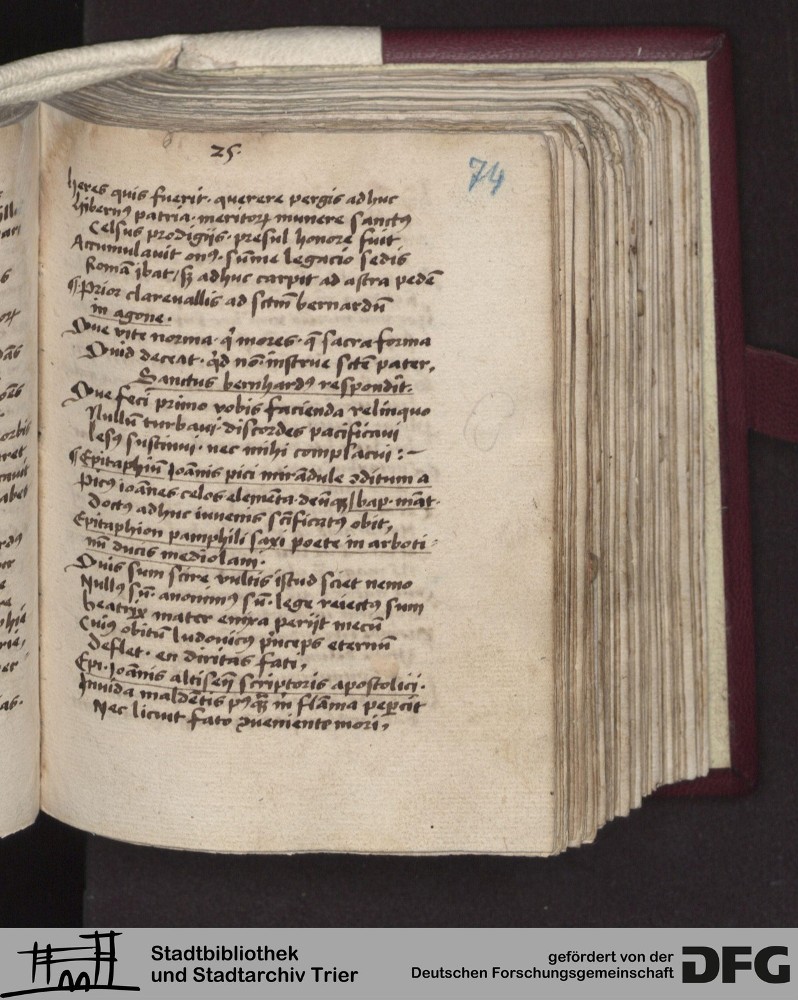 25.
74
heres quis fuerit. querere pergis adhuc
hibernꝰ patria. meritoꝝ munere sanctꝰ
Celsus prodigijs. presul honore fuit,
Accumulauit onꝰ. sūme legacio sedis
Romā ibat/ sꝫ adhuc carpit ad astra pedē
¶ Prior clarevallis ad sctm̄ bernardū
in agone.
Que vite norma. q̇ mores. q̄ sacra forma
Quid deceat. qd nō. instrue sctē pater,
Sanctus bernhardꝰ respondit.
Que feci primo vobis facienda relinquo
Nullū turbaui. discordes pacificaui
lesꝰ sustinui. nec mihi complacui :~
¶ Epitaphiū Joānis pici mirādule ꝯditum a
Picꝰ ioānes celos elemēta. deūqꝫ/ bap. māt.
Doctꝰ adhuc iuuenis scificatꝰ obit,
Epitaphion pamphili saxi poete in arboti-
nū ducis mediolani.
Quis sum scire vultis istud sciet nemo
Nullꝰ sū. anonimꝰ sū. lege reiectꝰ sum
beatrix mater enixa perijt mecū
Cuiꝰ obitū ludouicꝰ p̄nceps eternū
Deflet. en diritas fati,
Epi. Joānis altisen̄ scriptoris apostolici.
Inuida maldētis pꝰqꝫ in flāma peꝑcit
Nec licuit fato ꝯueniente mori,
Stadtbibliothek
und Stadtarchiv Trier
gefördert von der
Deutschen Forschungsgemeinschaft
DFG